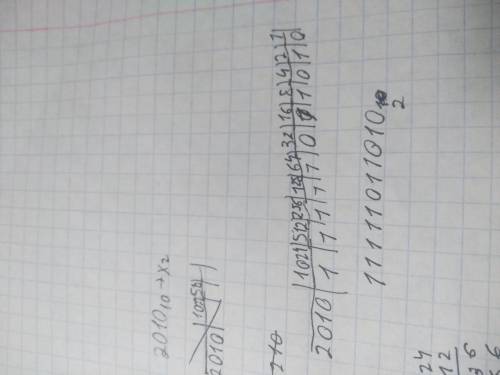 2010₁₀ → x₂
2010
1024|512|256|128|64|32|16|8|4|2|1
2010|1|1|1|1|1|0|1|1|0|1|0
11111011010₂
24
12